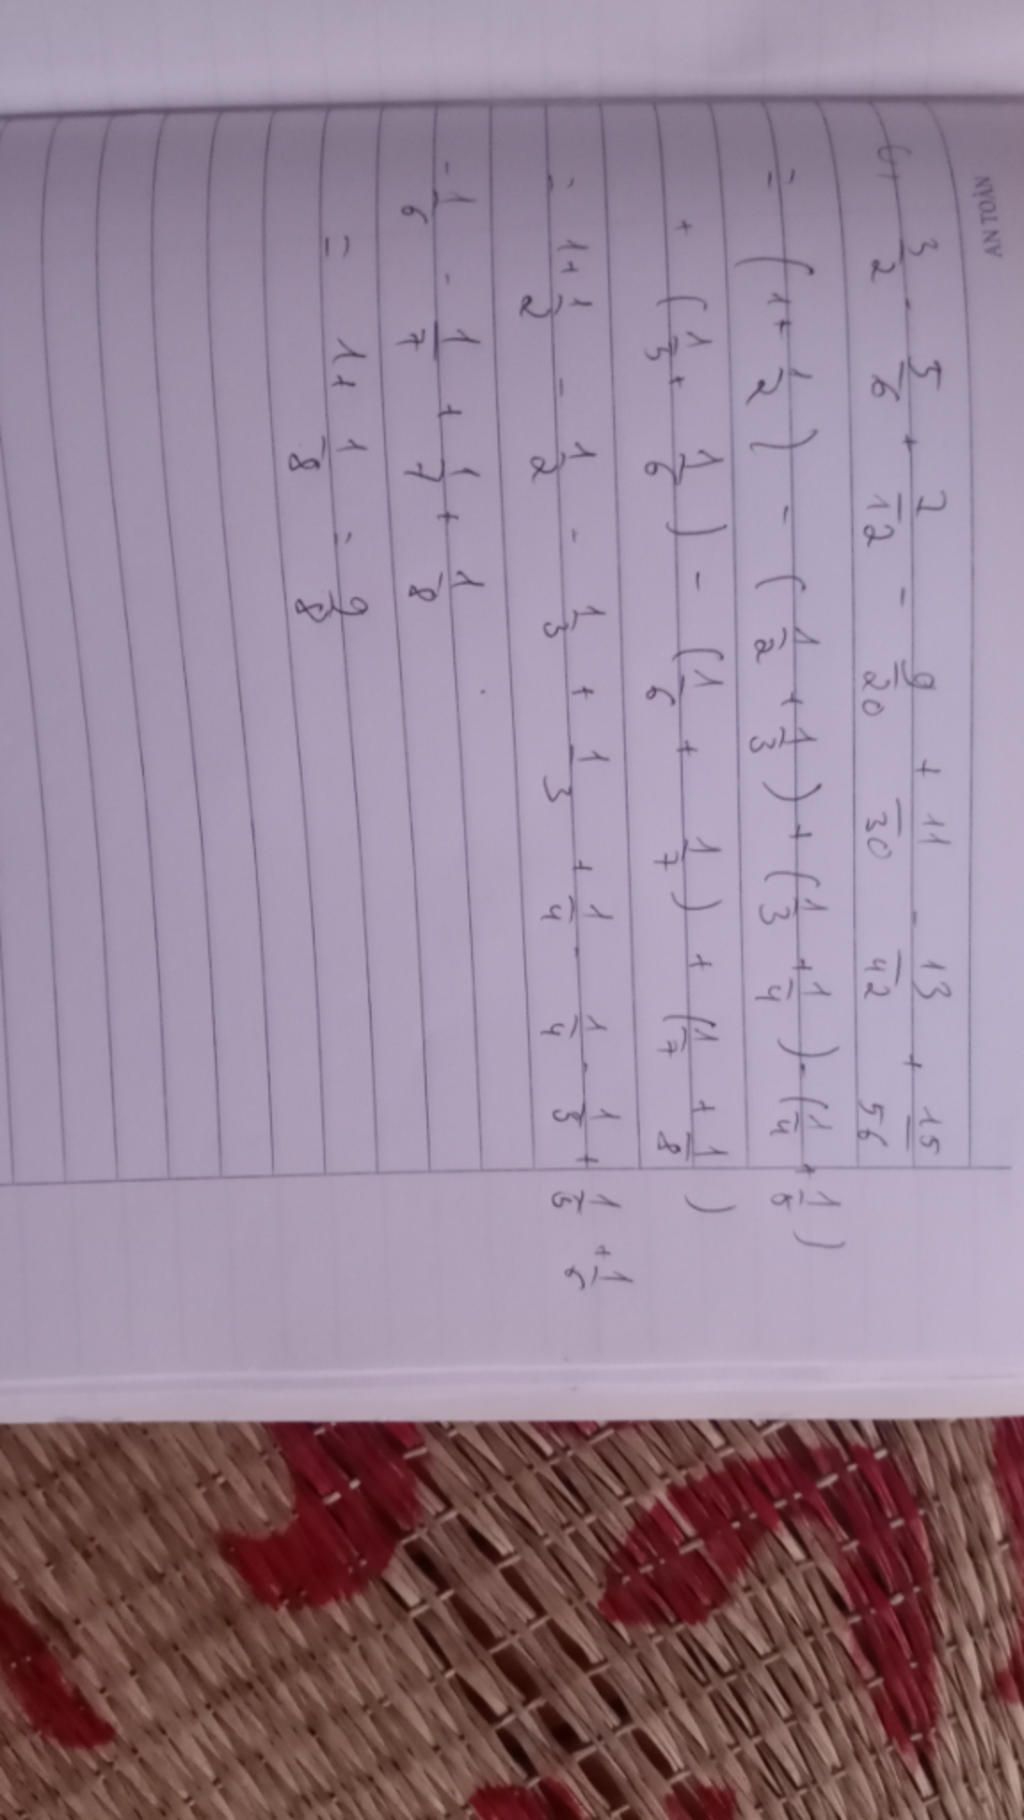 AN TOÀN
3/2 - 5/6 + 7/12 - 9/20 + 11/30 - 13/42 + 15/56
= (1+ 1/2) - (1/2 + 1/3) + (1/3 + 1/4) - (1/4 + 1/5)
+ (1/5 + 1/6) - (1/6 + 1/7) + (1/7 + 1/8)
= 1+ 1/2 - 1/2 - 1/3 + 1/3 + 1/4 - 1/4 - 1/5 + 1/5 + 1/6
- 1/6 - 1/7 + 1/7 + 1/8
= 1+ 1/8 = 9/8